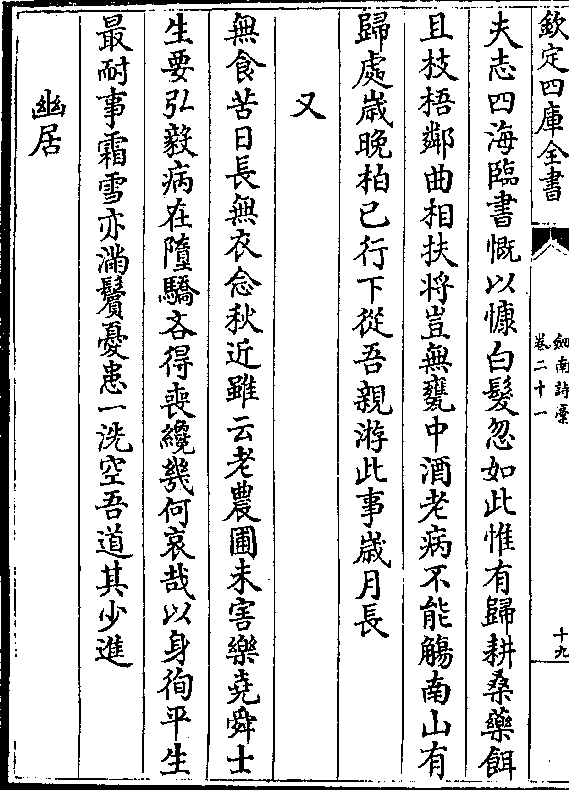 欽定四庫全書
劔南詩藁
卷二十一
十九
夫志四海臨書慨以慷白髮忽如此惟有歸耕桑藥餌
且枝梧鄰曲相扶將豈無甕中酒老病不能觴南山有
歸處嵗晚柏已行下從吾親游此事嵗月長
又
無食苦日長無衣念秋近雖云老農圃未害樂堯舜士
生要弘毅病在墮驕吝得喪纔幾何哀哉以身徇平生
最耐事霜雪亦滿鬢憂患一洗空吾道其少進
幽居